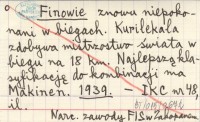 Finowie znowu niepoko-
nani w biegach. Kurilekala
zdobywa mistrzostwo świata w
biegu na 18 km. Najlepszą kla-
syfikację do kombinacji ma
Mäkinen. 1939. – IKC nr 48,
il.
Narc. zawody FIS w Zakopanem